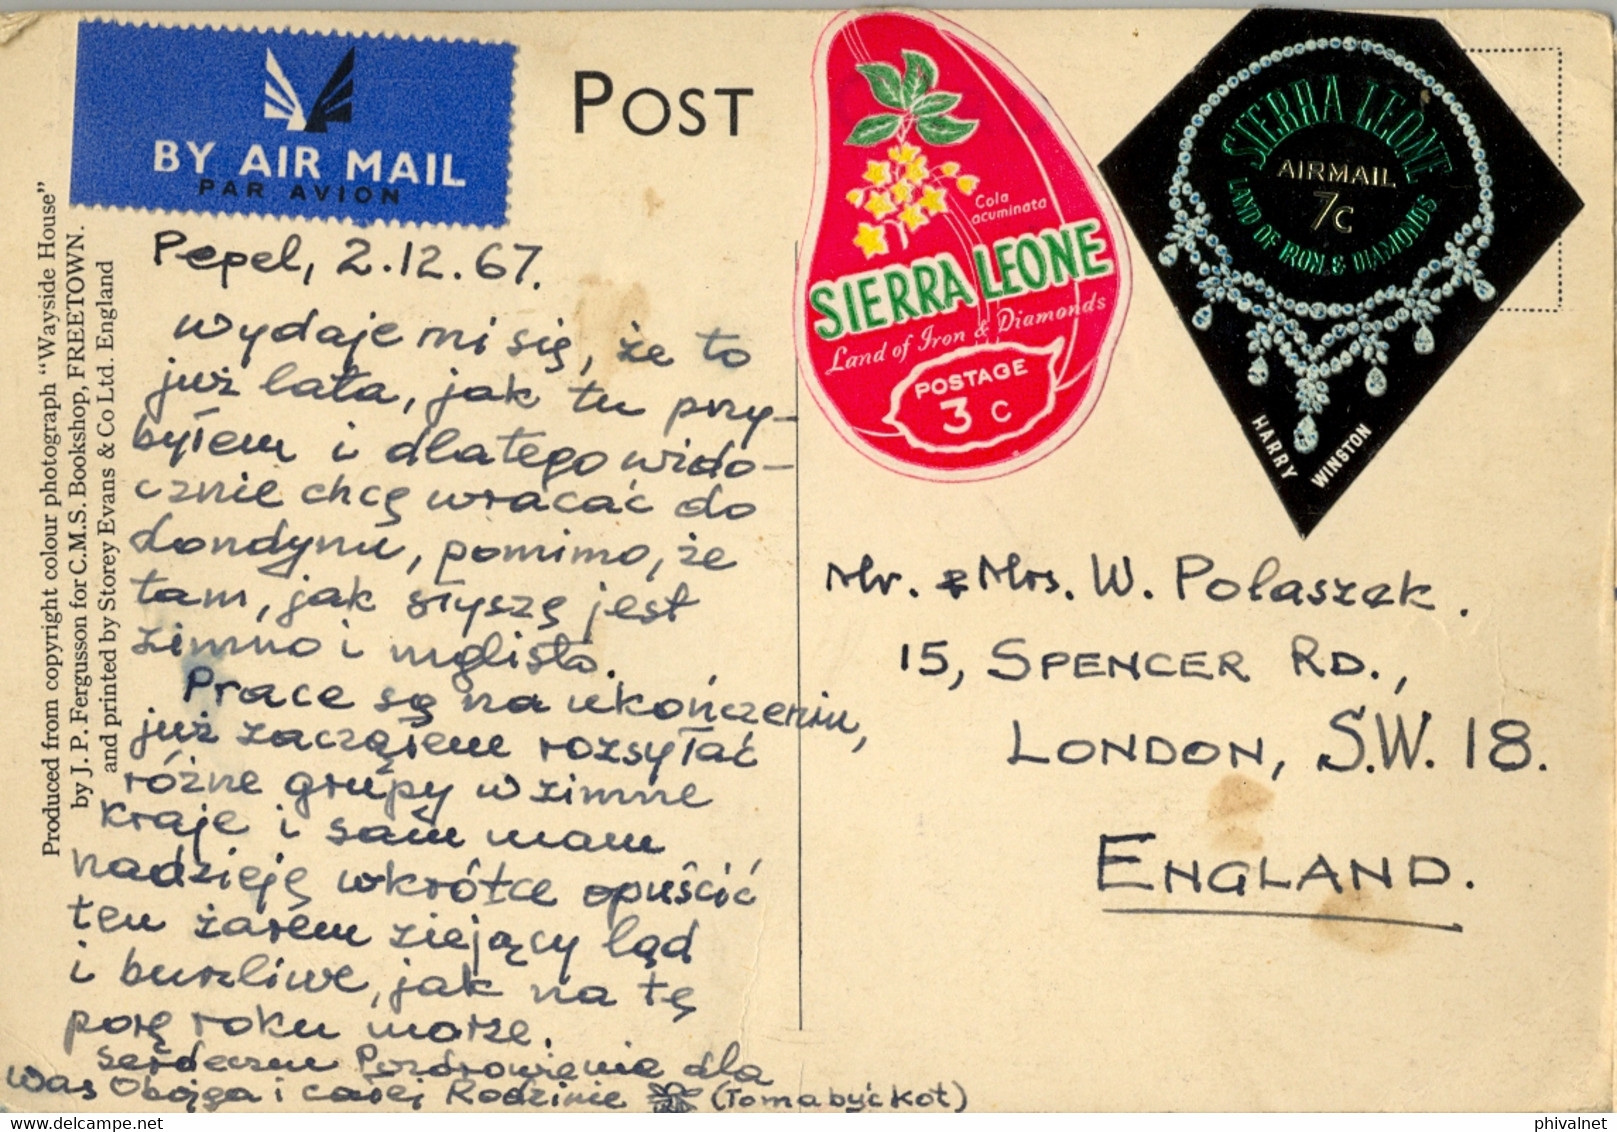 BY AIR MAIL
PAR AVION
POST
Cola
acuminata
SIERRA LEONE
Land of Iron & Diamonds
POSTAGE
3 C
SIERRA LEONE
AIRMAIL
7C
LAND OF IRON & DIAMONDS
HARRY WINSTON
Produced from copyright colour photograph "Wayside House"
by J. P. Fergusson for C.M.S. Bookshop, FREETOWN.
and printed by Storey Evans & Co Ltd. England
Pepel, 2.12.67.
Wydaje mi się, że to
już lata, jak tu przy-
byłem i dlatego wido-
cznie chcę wracać do
Londynu, pomimo, że
tam, jak słyszę jest
zimno i mglisto.
Prace są na ukończeniu,
już zacząłem rozsyłać
różne grupy w zimne
kraje i sam mam
nadzieję wkrótce opuścić
ten żarem ziejący ląd
i burzliwe, jak na tę
porę roku morze.
Serdeczne Pozdrowienia dla
Was Obojga i całej Rodzinie
(To ma być kot)
Mr. & Mrs. W. Polaszek.
15, SPENCER RD.,
LONDON, S.W. 18.
ENGLAND.
This is a maximum size of image
phivalnet